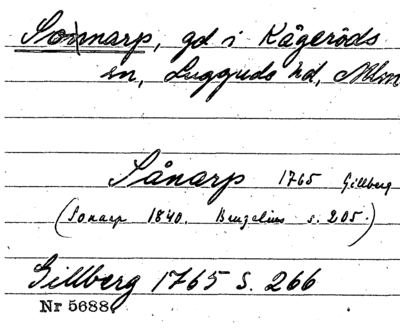 Sonnarp, gd i Kågeröds
sn, Luggude hd, Mlm
Sånarp 1765 Gillberg
(Sonarp 1840. Bengelius s. 205.)
Gillberg 1765 s. 266
Nr 5688.